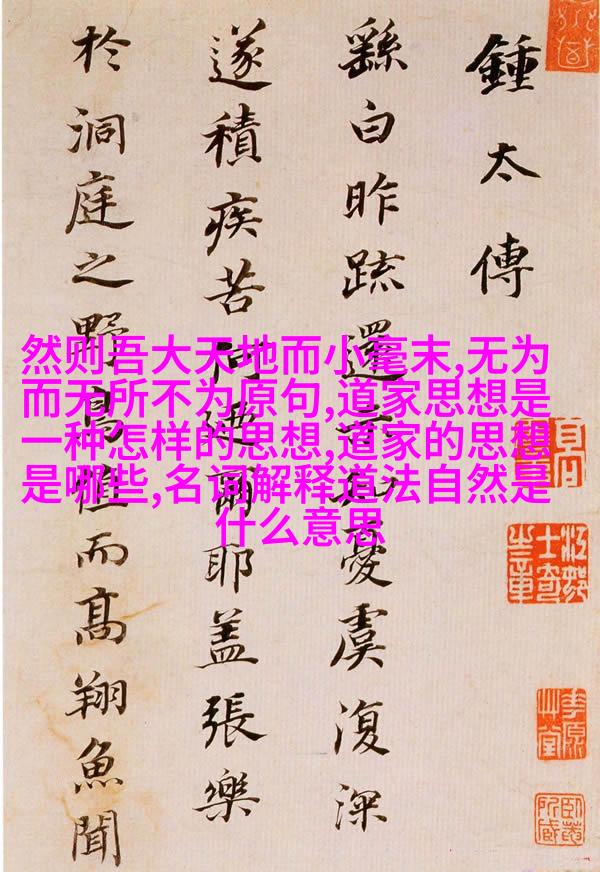 鍾太傅
繇白昨疏還示知憂虞復深
遂積疾苦何廼爾耶蓋張樂
於洞庭之野鳥值而高翔魚聞
然则吾大天地而小毫末,无为
而无所不为原句,道家思想是
一种怎样的思想,道家的思想
是哪些,名词解释道法自然是
什么意思